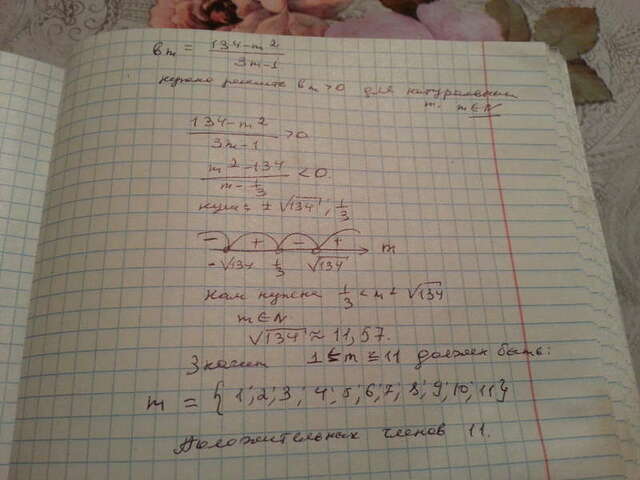 bm = (134-m²)/(3m-1)
нужно решить bm>0 для натуральных
m. m∈N
(134-m²)/(3m-1) > 0
(m²-134)/(m-1/3) < 0
нули: ±√134; 1/3
- + - +
-√134 1/3 √134 m
нам нужна 1/3 < m < √134
m∈N
√134 ≈ 11,57.
Значит 1 ≤ m ≤ 11 должен быть:
m = {1; 2; 3; 4; 5; 6; 7; 8; 9; 10; 11}
Положительных членов 11.